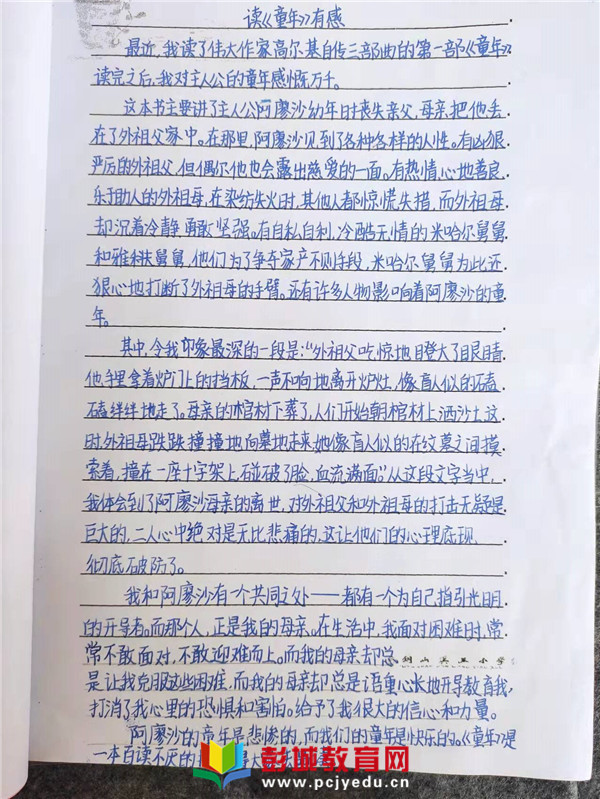 读《童年》有感
最近,我读了伟大作家高尔基自传三部曲的第一部《童年》
读完之后,我对主人公的童年感慨万千。
这本书主要讲了主人公阿廖沙幼年时丧失亲父,母亲把他丢
在了外祖父家中。在那里,阿廖沙见到了各种各样的人性。有凶狠
严厉的外祖父,但偶尔他也会露出慈爱的一面。有热情,心地善良
乐于助人的外祖母,在染纺失火时,其他人都惊慌失措,而外祖母
却沉着冷静勇敢坚强。有自私自利,冷酷无情的米哈尔舅舅
和雅科夫舅舅,他们为了争夺家产不则手段,米哈尔舅舅为此还
狠心地打断了外祖母的手臂。还有许多人物影响着阿廖沙的童
年。
其中,令我印象最深的一段是:“外祖父吃惊地瞪大了眼睛.
他手里拿着炉门上的挡板,一声不响地离开炉灶,像盲人似的磕
磕绊绊地走了。母亲的棺材下葬了,人们开始朝棺材上洒沙土,这
时,外祖母跌跌撞撞地向墓地走来,她像盲人似的在坟墓之间摸
索着,撞在一座十字架上,碰破了脸,血流满面”从这段文字当中,
我体会到了阿廖沙母亲的离世,对外祖父和外祖母的打击无疑是
巨大的,二人心中绝对是无比悲痛的,这让他们的心理底现、
彻底破防了。
我和阿廖沙有一个共同之处——都有一个为自己指引光明
的开导者。而那个人,正是我的母亲。在生活中,我面对困难时,常
常不敢面对,不敢迎难而上。而我的母亲却总
是让我克服这些困难,而我的母亲却总是语重心长地开导教育我,
打消了我心里的恐惧和害怕。给予了我很大的信心和力量。
阿廖沙的童年是悲惨的,而我们的童年是快乐的。《童年》是
一本百读不厌的
彭城教育网
www.pcjyedu.cn